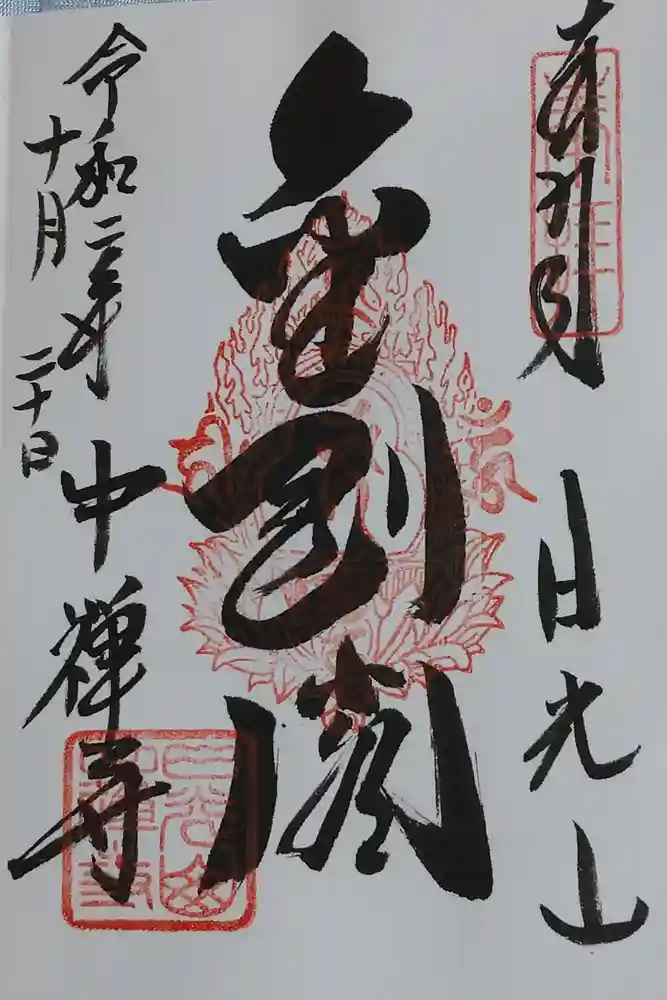 奉拝
日光山
金剛閣
令和二年
十月二十日
中禅寺